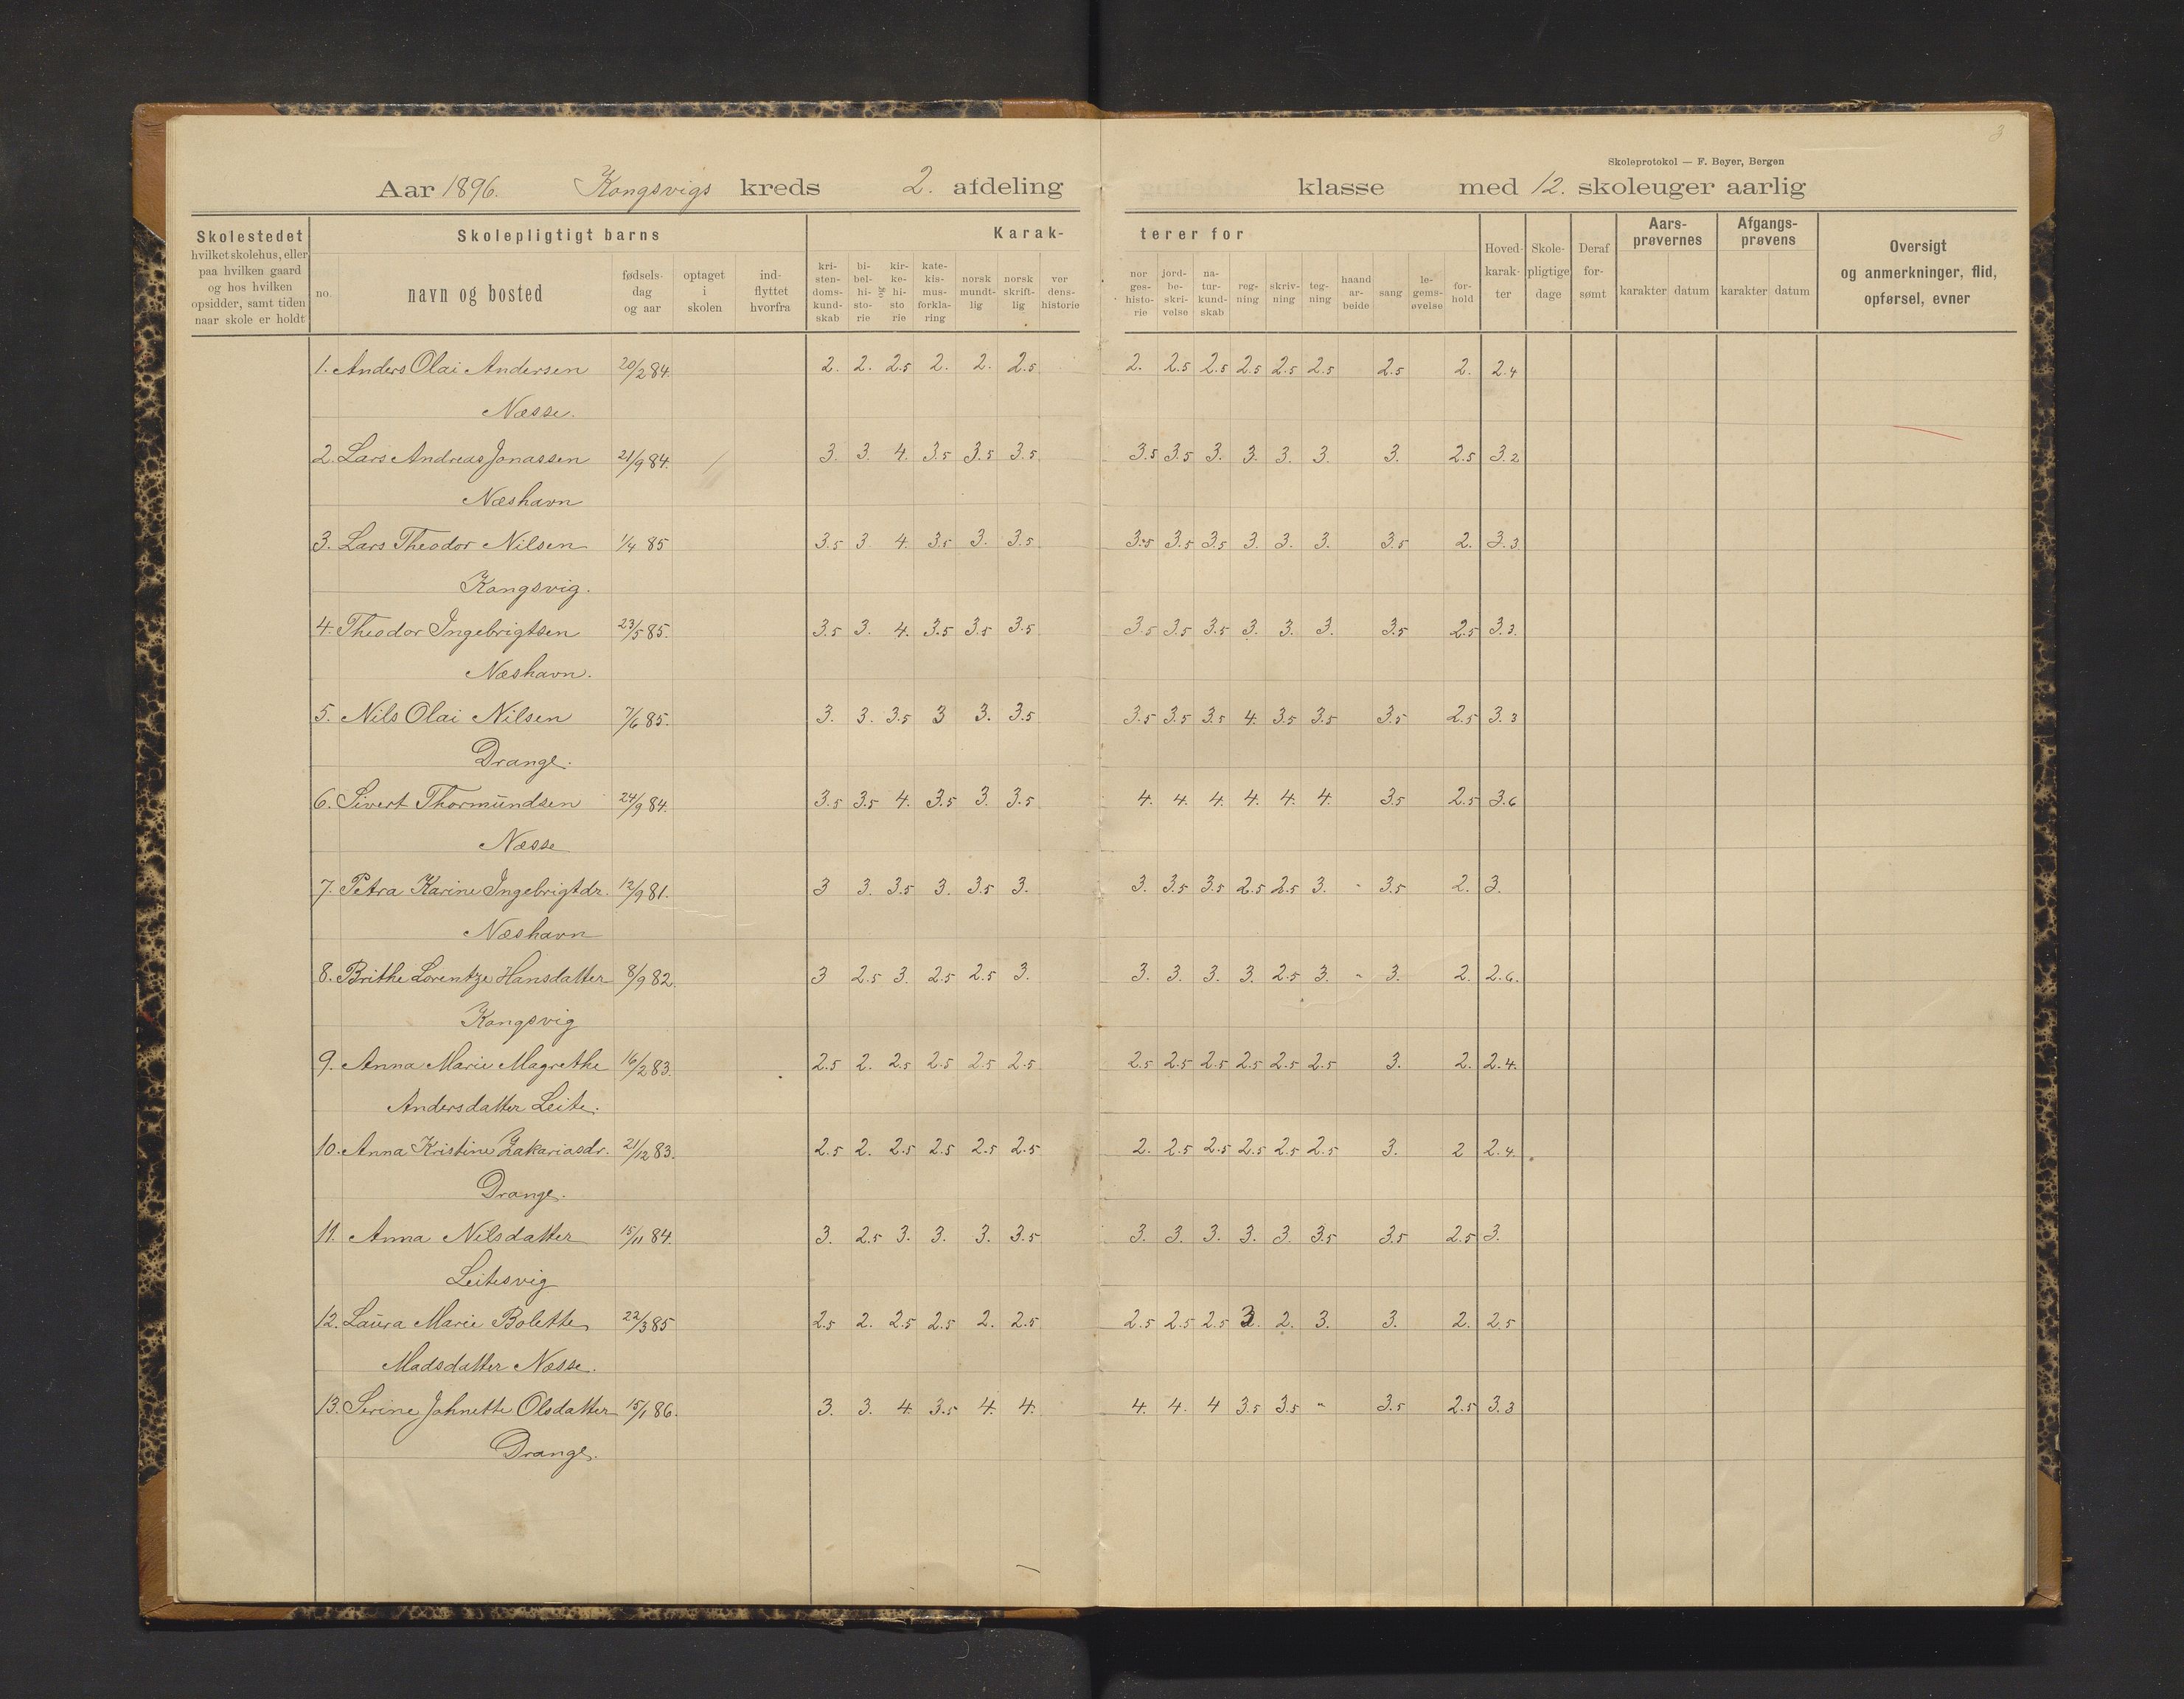 3
Skoleprotokol — F. Beyer, Bergen
Aar 1896. Kongsvigs kreds 2. afdeling klasse med 12. skoleuger aarlig
Skolestedet hvilket skolehus, eller paa hvilken gaard og hos hvilken opsidder, samt tiden naar skole er holdt
Skolepligtigt barns
no. navn og bosted fødsels-dag og aar optaget i skolen ind-flyttet hvorfra
Karak- terer for
kri-sten-doms-kund-skab bi-bel-hi-sto-rie kir-ke-hi-sto rie kate-kis-mus-forkla-ring norsk mundt-lig norsk skrift-lig ver dens-historie nor ges-histo-rie jord-be-skri-velse na-tur-kund-skab reg-ning skriv-ning teg-ning haand ar-beide sang le-gems-øvelse for-hold
Hoved-karak-ter Skole-pligtige dage Deraf for-sømt
Aars-prøvernes karakter datum
Afgangs-prøvens karakter datum
Oversigt og anmerkninger, flid, opførsel, evner
1. Anders Olai Andersen 20/2 84. 2. 2. 2.5 2. 2. 2.5 2. 2.5 2.5 2.5 2.5 2.5 2.5 2. 2.4
Næsse.
2. Lars Andreas Jonassen 21/9 84. 3. 3. 4. 3.5 3.5 3.5 3.5 3.5 3. 3. 3. 3. 3. 2.5 3.2
Næshavn
3. Lars Theodor Nilsen 1/4 85 3.5 3 4. 3.5 3. 3.5 3.5 3.5 3.5 3. 3. 3. 3.5 2. 3.3
Kongsvig.
4. Theodor Ingebrigtsen 23/5 85. 3.5 3. 4. 3.5 3.5 3.5 3.5 3.5 3.5 3. 3. 3. 3.5 2.5 3.3.
Næshavn.
5. Nils Olai Nilsen 7/6 85. 3. 3. 3.5 3 3. 3.5 3.5 3.5 3.5 4. 3.5 3.5 3.5 2.5 3.3
Drange.
6. Sivert Thormundsen 24/9 84. 3.5 3.5 4. 3.5 3. 3.5 4. 4. 4. 4. 4. 4. 3.5 2.5 3.6
Næsse
7. Petra Karine Ingebrigtdr. 12/9 81. 3 3. 3.5 3. 3.5 3. 3. 3.5 3.5 2.5 2.5 3. " 3.5 2. 3.
Næshavn
8. Brithe Lorentze Hansdatter 8/9 82. 3 2.5 3. 2.5 2.5 3. 3. 3. 3. 3. 2.5 3. " 3. 2. 2.6.
Kongsvig
9. Anna Marie Magrethe 16/2 83. 2.5 2. 2.5 2.5 2.5 2.5 2.5 2.5 2.5 2.5 2.5 2.5 3. 2. 2.4.
Andersdatter Leite.
10. Anna Kristine Zakariasdr. 21/12 83. 2.5 2. 2.5 2.5 2.5 2.5 2. 2.5 2.5 2.5 2.5 2.5 3. 2 2.4.
Drange.
11. Anna Nilsdatter 15/11 84. 3. 2.5 3. 3. 3. 3.5 3. 3. 3. 3. 3. 3.5 3.5 2.5 3.
Leitesvig
12. Laura Marie Bolette 22/3 85 2.5 2. 2.5 2.5 2. 2.5 2.5 2.5 2.5 3. 2. 3. 3. 2. 2.5
Madsdatter Næsse.
13. Serine Johnette Olsdatter 15/1 86. 3. 3. 4. 3.5 4. 4. 4. 4. 4 3.5 3.5 " 3.5 2.5 3.3
Drange.